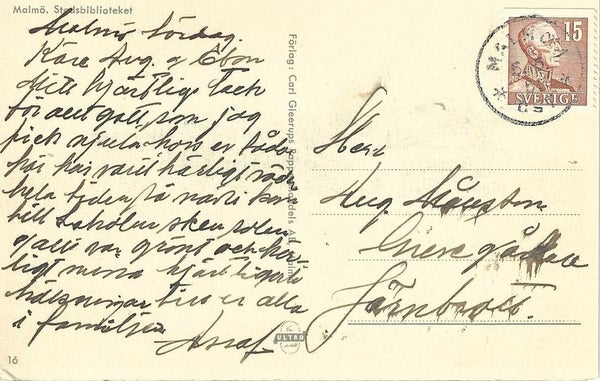 Malmö. Stadsbiblioteket
Malmö Lördag.
Kära Aug. o Ebon
Mitt hjärtliga tack
för allt gott, som jag
fick njuta hos er båda
här har varit härligt väder
hela tiden så när vi kom
till sken solen
allt var grönt och här-
ligt mina hjärtligaste
hälsningar till er alla
i familjen
Förlag: Carl Gleerups Pappershandels AB, Malmö
ULTRA
16
15
SVERIGE
MALMÖ
Herr
Aug. Månsson
Järnbrott